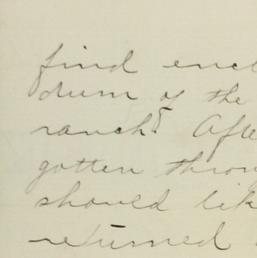 find encl
dum of the
ranch. Afte
gotten throu
should lik
returned